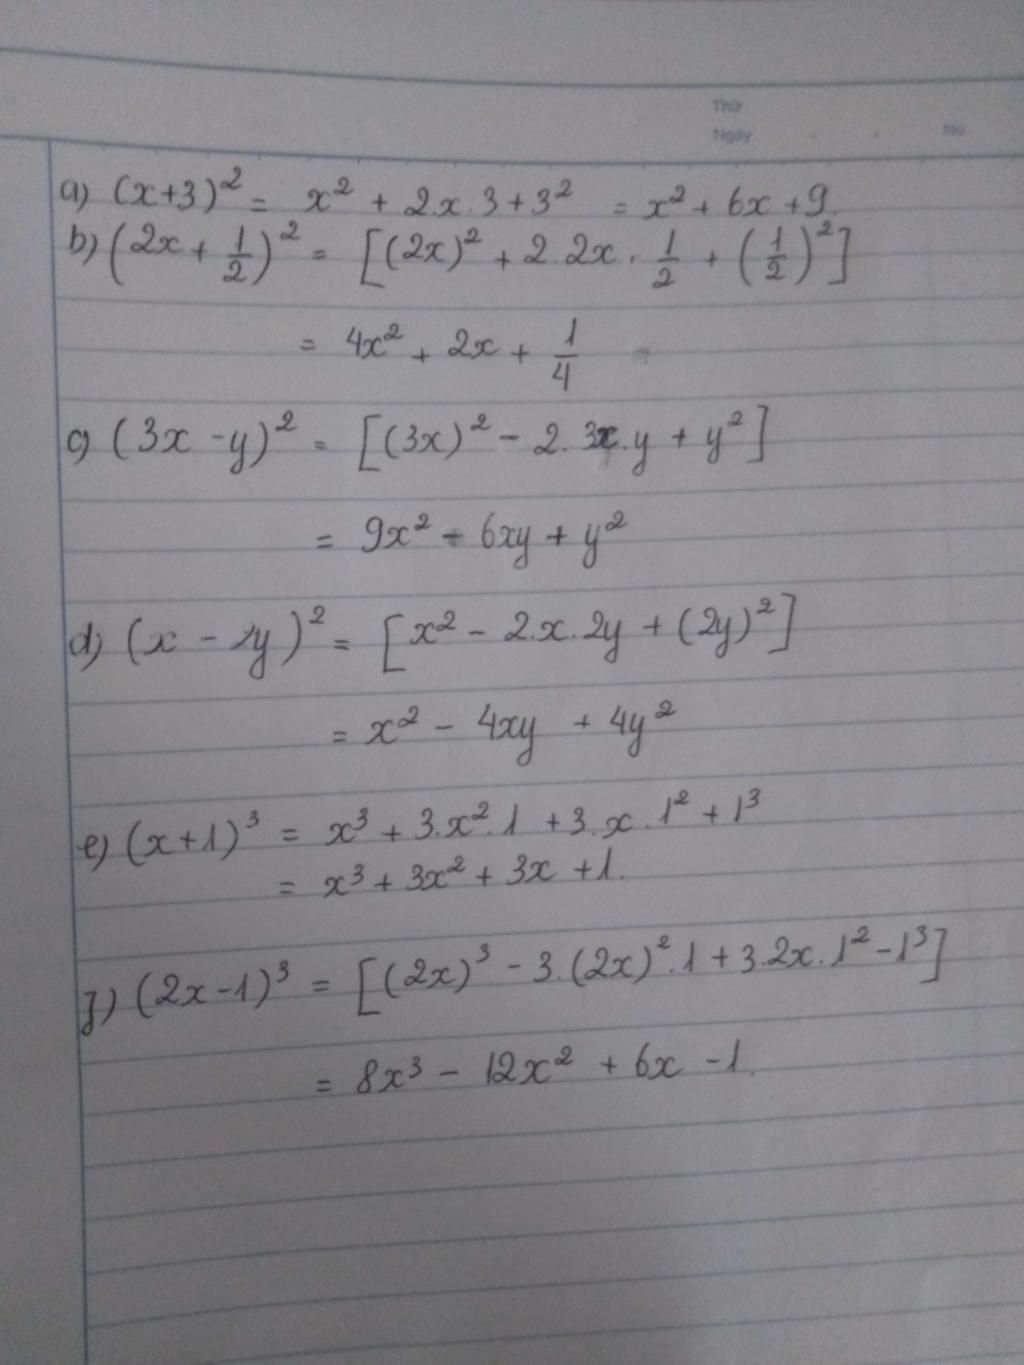 Thứ
Ngày . . No.
a) (x+3)² = x² + 2.x.3 + 3² = x² + 6x + 9.
b) (2x + 1/2)² = [(2x)² + 2.2x . 1/2 + (1/2)²]
= 4x² + 2x + 1/4
c) (3x - y)² = [(3x)² - 2.3x.y + y²]
= 9x² - 6xy + y²
d) (x - 2y)² = [x² - 2.x.2y + (2y)²]
= x² - 4xy + 4y²
e) (x+1)³ = x³ + 3.x².1 + 3.x.1² + 1³
= x³ + 3x² + 3x + 1.
f) (2x-1)³ = [(2x)³ - 3.(2x)².1 + 3.2x.1² - 1³]
= 8x³ - 12x² + 6x - 1.